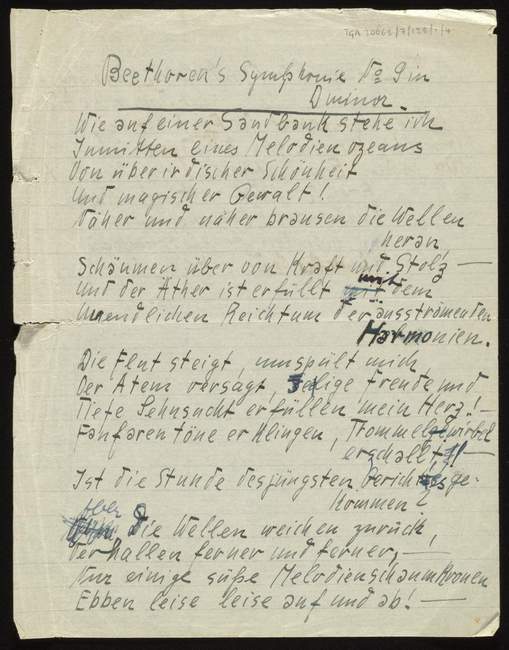 TGA 20062/3/128/1/4
Beethoven's Symphonie No 9 in
D minor.
Wie auf einer Sandbank stehe ich
Inmitten eines Melodien ozeans
Von überirdischer Schönheit
Und magischer Gewalt!
Näher und näher brausen die Wellen
heran,
Schäumen über von Kraft und Stolz —
Und der Äther ist erfüllt mit dem
Unendlichen Reichtum der ausströmenden
Harmonien.
Die Flut steigt, umspült mich
Der Atem versagt, Selige Freude und
Tiefe Sehnsucht erfüllen mein Herz! —
Fanfaren töne erklingen, Trommelgewirbel
erschallt! —
Ist die Stunde des jüngsten Gerichtes ge-
kommen
Aber
Die Wellen weichen zurück,
Verhallen ferner und ferner, —
Nur einige süße Melodienschaumkronen
Ebben leise leise auf und ab! —